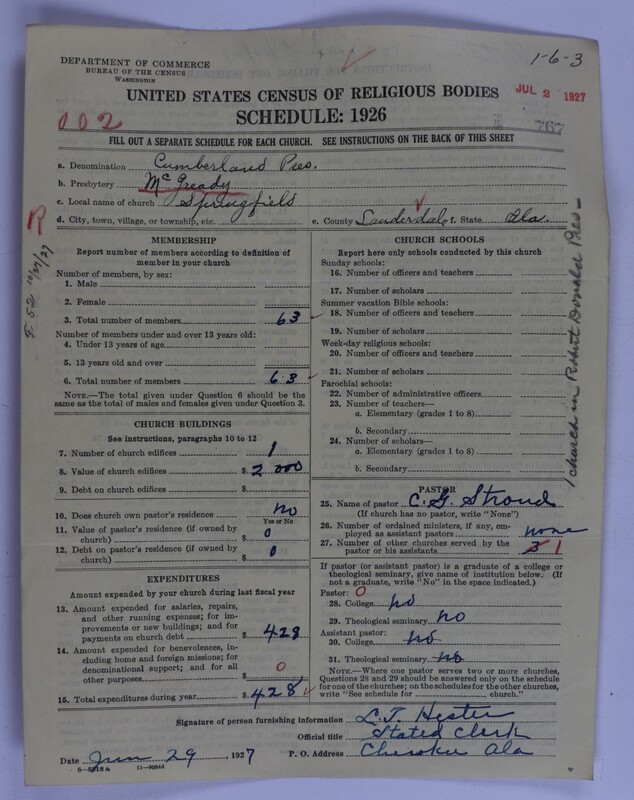 1-6-3
DEPARTMENT OF COMMERCE
BUREAU OF THE CENSUS
WASHINGTON
UNITED STATES CENSUS OF RELIGIOUS BODIES
JUL 2 1927
SCHEDULE: 1926
002
767
FILL OUT A SEPARATE SCHEDULE FOR EACH CHURCH. SEE INSTRUCTIONS ON THE BACK OF THIS SHEET
a. Denomination Cumberland Pres.
b. Presbytery McGready
c. Local name of church Springfield
d. City, town, village, or township, etc.
e. County Lauderdale f. State Ala.
R
E 52 10/27/27
MEMBERSHIP
Report number of members according to definition of
member in your church
Number of members, by sex:
1. Male
2. Female
3. Total number of members 63
Number of members under and over 13 years old:
4. Under 13 years of age
5. 13 years old and over
6. Total number of members 63
NOTE.—The total given under Question 6 should be the
same as the total of males and females given under Question 3.
CHURCH BUILDINGS
See instructions, paragraphs 10 to 12
7. Number of church edifices 1
8. Value of church edifices $ 2000
9. Debt on church edifices $
10. Does church own pastor's residence? no
Yes or No
11. Value of pastor's residence (if owned by
church) $ 0
12. Debt on pastor's residence (if owned by
church) $ 0
EXPENDITURES
Amount expended by your church during last fiscal year
13. Amount expended for salaries, repairs,
and other running expenses; for im-
provements or new buildings; and for
payments on church debt $ 428
14. Amount expended for benevolences, in-
cluding home and foreign missions; for
denominational support; and for all
other purposes $ 0
15. Total expenditures during year $ 428
CHURCH SCHOOLS
Report here only schools conducted by this church
Sunday schools:
16. Number of officers and teachers
17. Number of scholars
Summer vacation Bible schools:
18. Number of officers and teachers
19. Number of scholars
Week-day religious schools:
20. Number of officers and teachers
21. Number of scholars
Parochial schools:
22. Number of administrative officers
23. Number of teachers—
a. Elementary (grades 1 to 8)
b. Secondary
24. Number of scholars—
a. Elementary (grades 1 to 8)
b. Secondary
1 church in Robert Donald Pres-
PASTOR
25. Name of pastor C. G. Stroud
(If church has no pastor, write "None")
26. Number of ordained ministers, if any, em-
ployed as assistant pastors none
27. Number of other churches served by the
pastor or his assistants 3 1
If pastor (or assistant pastor) is a graduate of a college or
theological seminary, give name of institution below. (If
not a graduate, write "No" in the space indicated.)
Pastor: 0
28. College no
29. Theological seminary no
Assistant pastor:
30. College no
31. Theological seminary no
NOTE.—Where one pastor serves two or more churches,
Questions 28 and 29 should be answered only on the schedule
for one of the churches; on the schedules for the other churches,
write "See schedule for church."
Signature of person furnishing information L. T. Hester
Official title Stated Clerk
Date Jun 29, 1927 P. O. Address Cherokee Ala